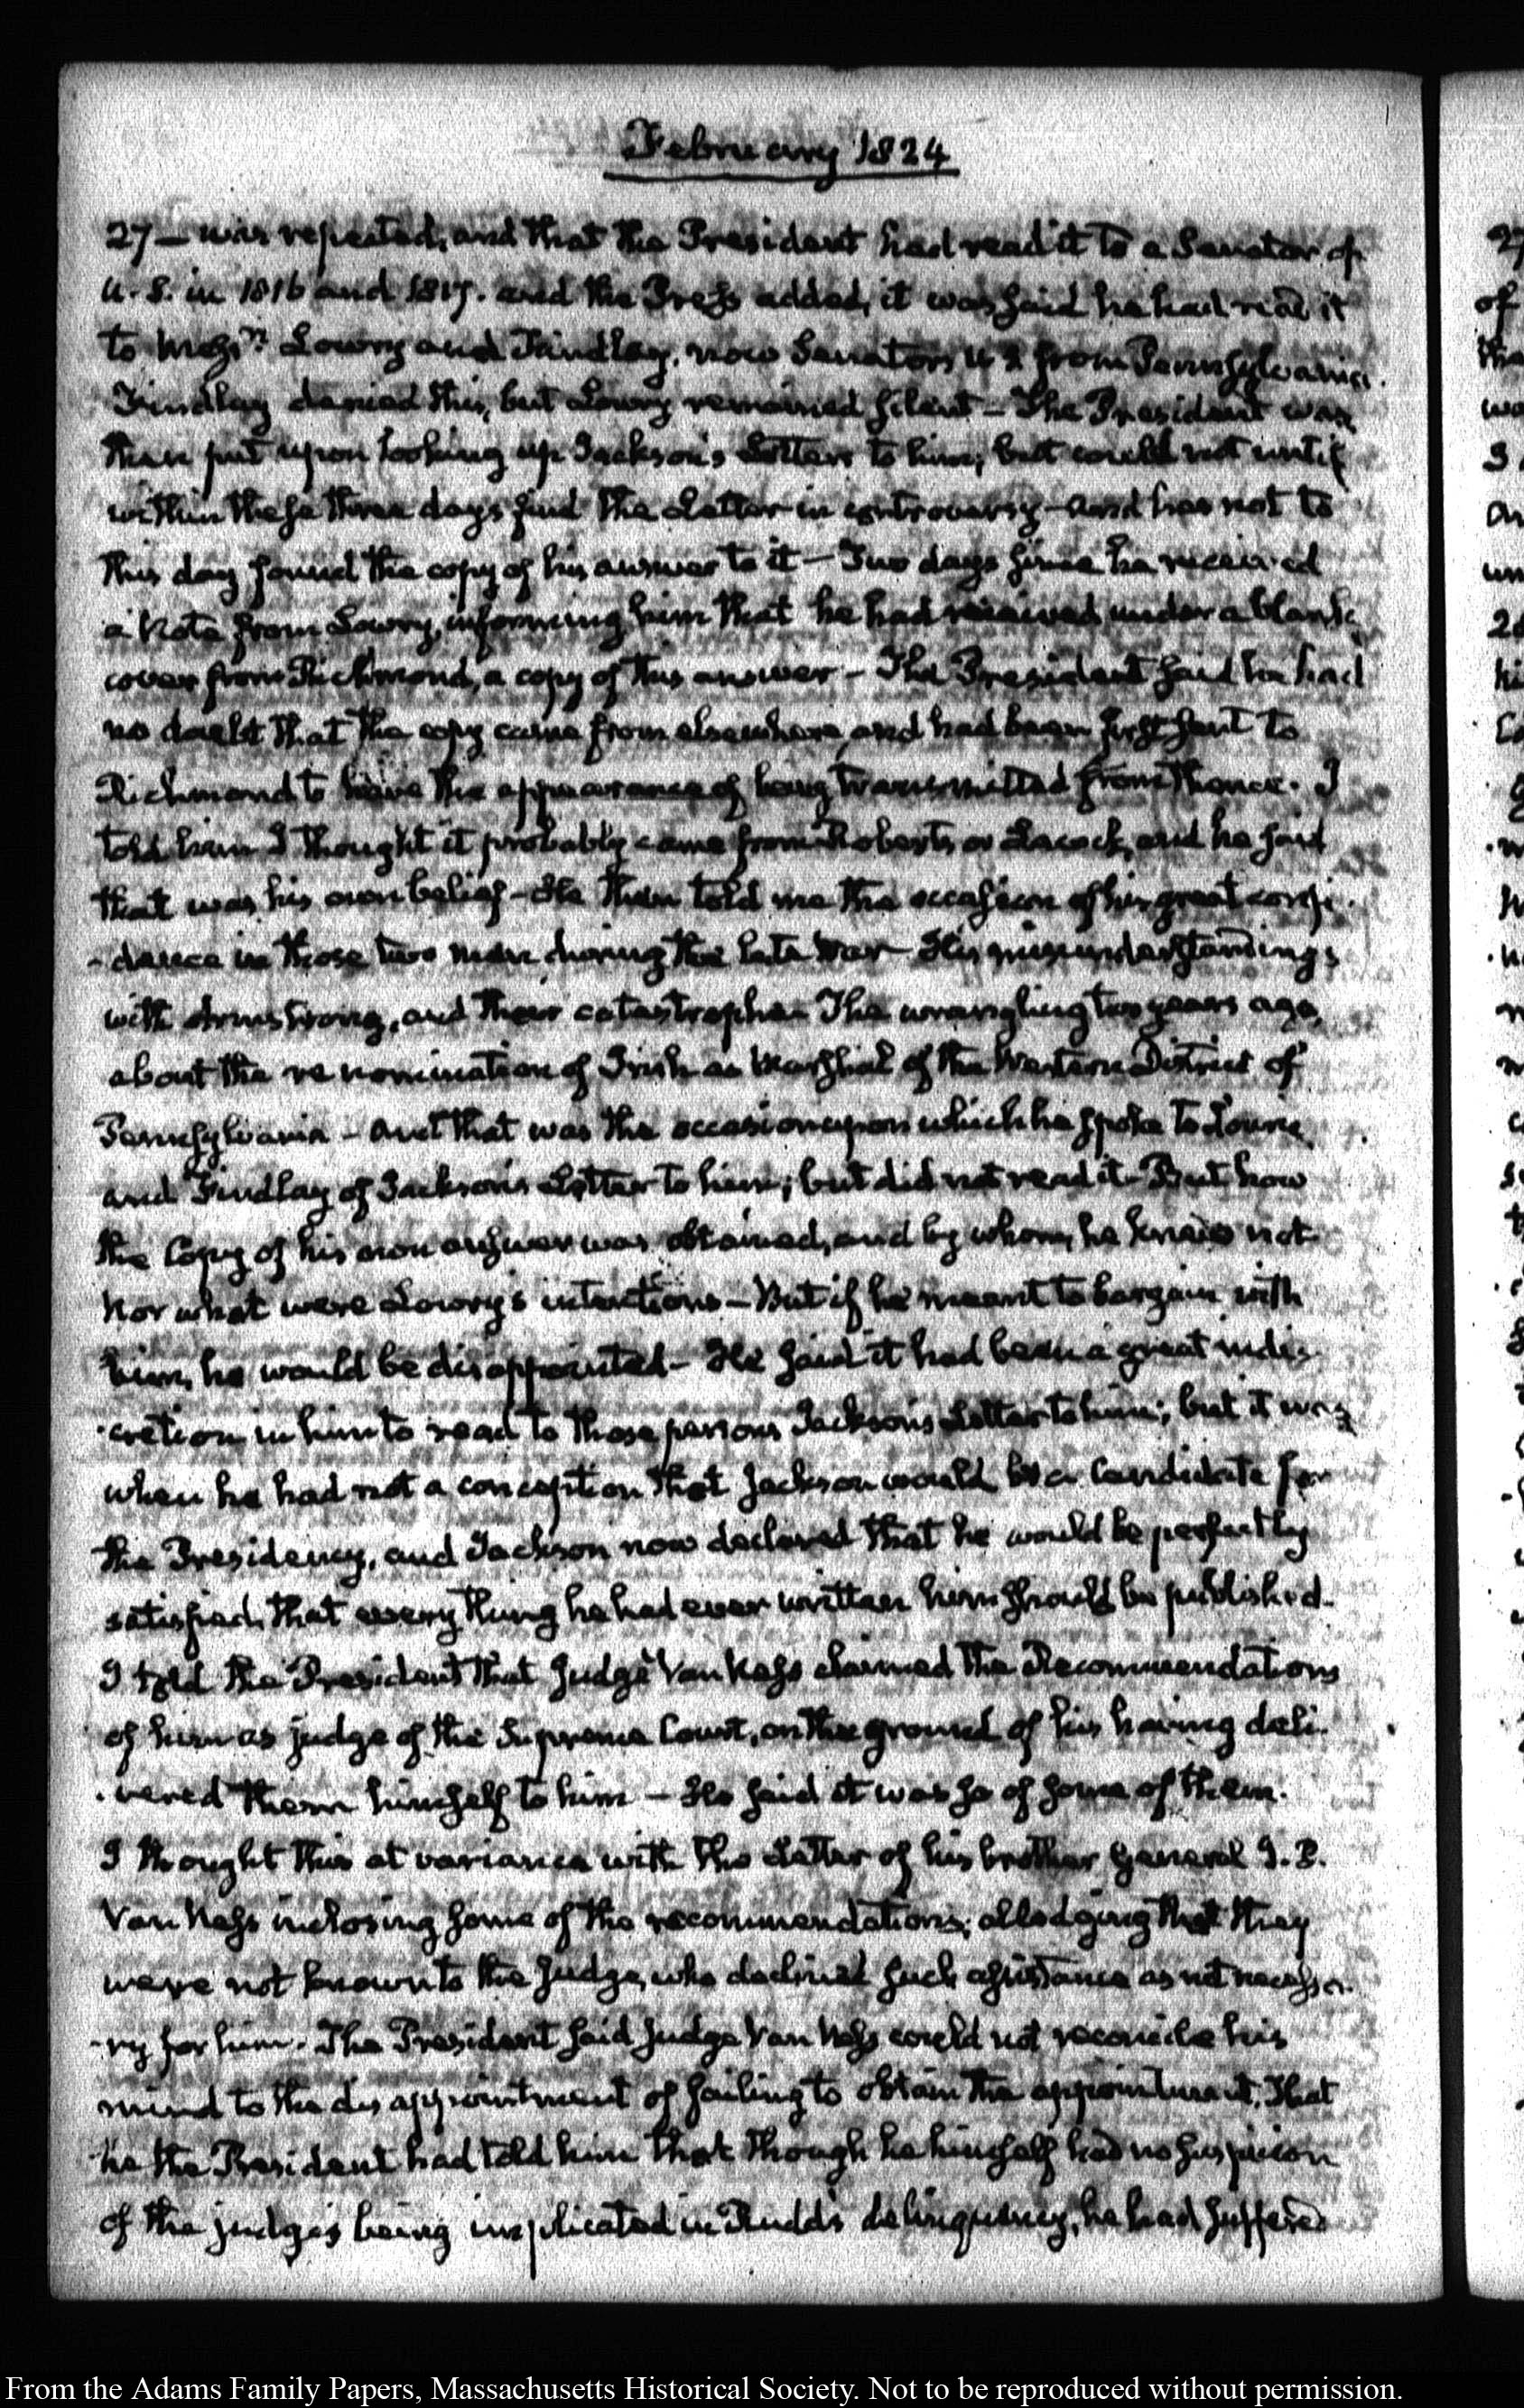 February 1824
27— was repeated, and that the President had read it to a Senator of
U.S. in 1816 and 1817. and the Press added, it was said he had read it
to Messrs. Lowry and Findlay, now Senators U S from Pennsylvania.
Findlay denied this, but Lowry remained silent — The President was
then put upon looking up Jackson's Letters to him; but could not until
within these three days find the Letter in controversy — and has not to
this day found the copy of his answer to it — Two days since he received
a Note from Lowry, informing him that he had received under a blank
cover from Richmond, a copy of this answer — The President said he had
no doubt that the copy came from elsewhere, and had been first sent to
Richmond to have the appearance of being transmitted from thence. I
told him I thought it probably came from Roberts or Lacock, and he said
that was his own belief — He then told me the occasion of his great confi-
-dence in those two men during the late War — His misunderstandings
with Armstrong, and their catastrophe — The wrangling two years ago,
about the renomination of Irish as Marshal of the Western District of
Pennsylvania — and that was the occasion upon which he spoke to Lowrie
and Findlay of Jackson's Letter to him; but did not read it — But how
the Copy of his own answer was obtained, and by whom, he knew not
Nor what were Lowry's intentions — But if he meant to bargain with
him, he would be disappointed — He said it had been a great indis-
-cretion in him to read to those persons Jackson's Letter to him; but it was
when he had not a conception that Jackson would be a Candidate for
the Presidency, and Jackson now declared that he would be perfectly
satisfied, that every thing he had ever written him should be published.
I told the President that Judge Van Ness claimed the Recommendations
of him as judge of the Supreme Court, on the ground of his having deli-
-vered them himself to him — He said it was so of some of them.
I thought this at variance with the Letter of his brother General J. P.
Van Ness inclosing some of the recommendations; alledging that they
were not known to the Judge, who declined such assistance as not necessa-
-ry for him. The President said Judge Van Ness could not reconcile his
mind to the disappointment of failing to obtain the appointment. That
he the President had told him that though he himself had no suspicion
of the judge's being implicated in Rudd's delinquency, he had suffered
From the Adams Family Papers, Massachusetts Historical Society. Not to be reproduced without permission.